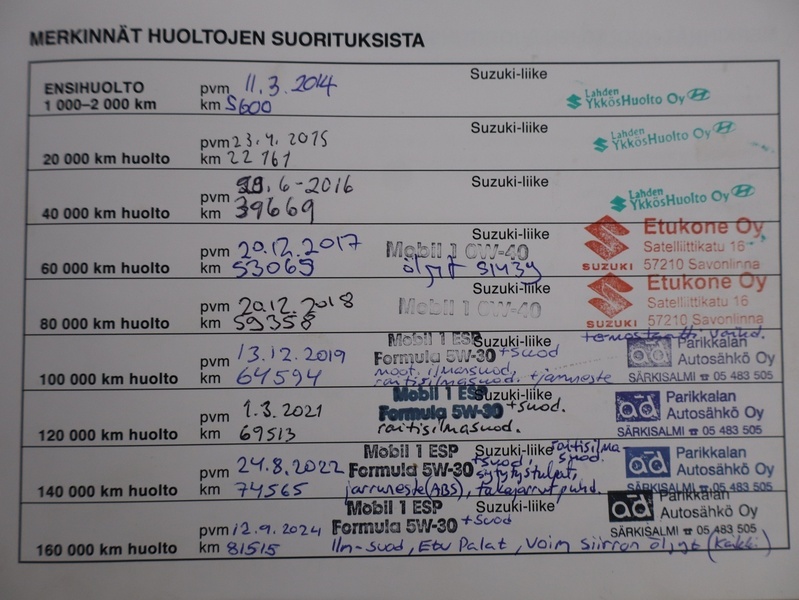 MERKINNÄT HUOLTOJEN SUORITUKSISTA
ENSIHUOLTO pvm 11.3.2014 Suzuki-liike Lahden
1 000–2 000 km km 5600 YkkösHuolto Oy
pvm 23.4.2015 Suzuki-liike Lahden
20 000 km huolto km 22161 YkkösHuolto Oy
pvm 28.6-2016 Suzuki-liike Lahden
40 000 km huolto km 39669 YkkösHuolto Oy
pvm 20.12.2017 Mobil 1 0W-40 Suzuki-liike Etukone Oy
Satelliittikatu 16
60 000 km huolto km 53065 SUZUKI 57210 Savonlinna
pvm 20.12.2018 Mobil 1 0W-40 Suzuki-liike Etukone Oy
Satelliittikatu 16
80 000 km huolto km 59358 SUZUKI 57210 Savonlinna
Mobil 1 ESP Suzuki-liike
pvm 13.12.2019 Formula 5W-30 +suod ad Parikkalan
moot. ilmasuod, Autosähkö Oy
100 000 km huolto km 64594 raitisilmasuod. +jarruneste SÄRKISALMI ☎ 05 483 505
Mobil 1 ESP Suzuki-liike
pvm 1.3.2021 Formula 5W-30 +suod. ad Parikkalan
Autosähkö Oy
120 000 km huolto km 69513 raitisilmasuod. SÄRKISALMI ☎ 05 483 505
Mobil 1 ESP Suzuki-liike raitisilma
suod.
pvm 24.8.2022 Formula 5W-30 +suod, sytytystulpat, ad Parikkalan
Autosähkö Oy
140 000 km huolto km 74565 jarruneste (ABS), takajarrut puhd. SÄRKISALMI ☎ 05 483 505
Mobil 1 ESP Suzuki-liike Parikkalan
pvm 12.9.2024 Formula 5W-30 +suod ad Autosähkö Oy
SÄRKISALMI ☎ 05 483 505
160 000 km huolto km 81515 Ilm-suod, Etu Palat, Voim siirron öljyt (Kaikki)